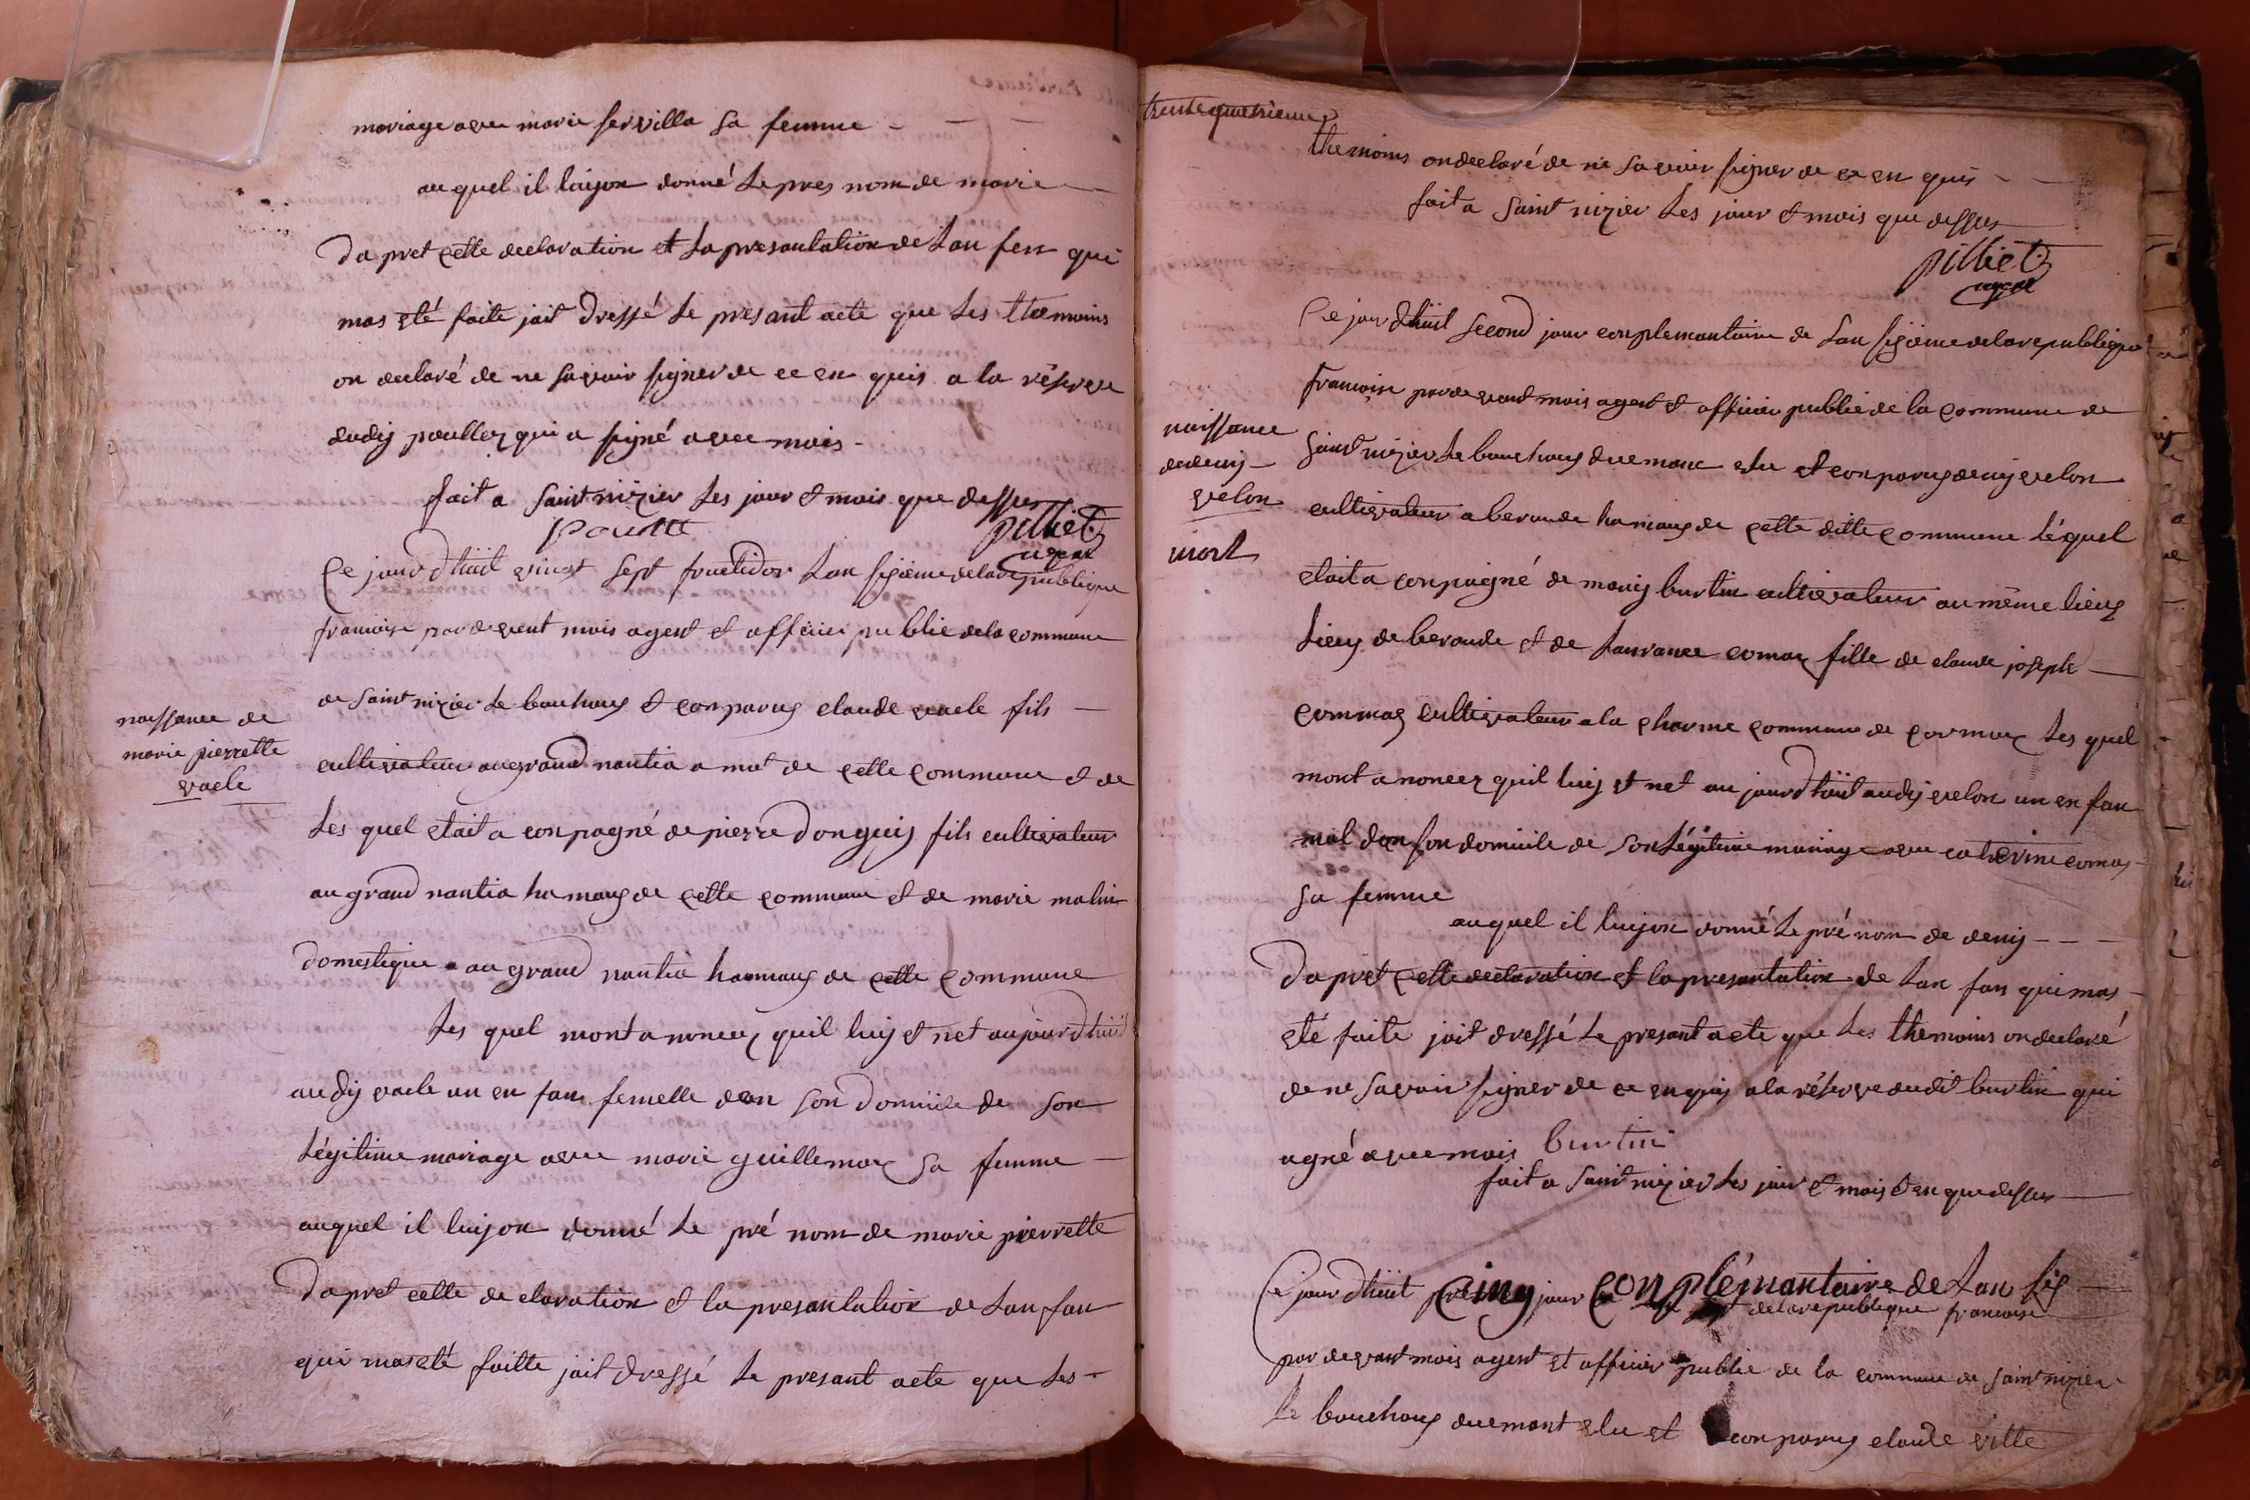 mariage avec marie servilla sa femme - - -
auquel il luiyon donné le pres nom de marie
dapret cette declaration et la presantation de lan fen qui
mas eté faite jait dressé le presant acte que les themoins
on declaré de ne savoir signer de ce en quis a la réserve
dudis poullez qui a signé avec mois -
fait a saint nizier les jour et mois que dessus
poullet pilliet
agent
Ce jour dhuit vingt sept fructidor lan sixieme de la republique
francoise par devent mois agent et officier public de la commune
de saint nizier le bouchoug et conparus claude vacle fils
naissance de
marie pierrette
vacle
cultivateur au grand nantia a mot de cette commune et de
les quel etait a conpagné de pierre donguis fils cultivateur
au grand nantia hamaug de cette commune et de marie malin
domestique au grand nantia hamaug de cette commune
les quel mont anoncez quil luis et net aujourdhuit
audis vacle un en fan femelle dan son domicile de son
légitime mariage avec marie guillemaz sa femme
auquel il luiyon donné le pré nom de marie pierrette
dapret cette declaration et la presantation de lan fan
qui mas eté faitte jait dressé le presant acte que les -
trentequatrieme
themoins on declaré de ne savoir signer de ce en quis
fait a saint nizier les jour et mois que dessus
pilliet
agent
Ce jour dhuit second jour conplemantaire de lan sixieme de la republique
francoise par devent mois agent et officier public de la commune de
naissance
de denis
velon
mort
saint nizier le bouchoug duemanc elu et conparus denis velon
cultivateur a beroude hamaug de cette ditte commune léquel
etait a conpagné de maris burtin cultivateur au même lieug
lieug de beroude et de laurance comaz fille de claude joseph
commaz cultivateur a la charme commune de cormoz les quel
mont anoncez quil luis et net au jourdhuit audis velon un en fan
mal dan son domicile de son légitime mariage avec catherine comas
sa femme
auquel il luiyon donné le pré nom de denis - - -
dapret cette declaration et la presantation de lan fan qui mas
eté faite jait dressé le presant acte que les themoins on declaré
de ne savoir signer de ce en quis a la réserve dudit burtin qui
agné avec mois burtin
fait a saint nizier les jour et mois et en que dessus
Ce jour dhuit cinq jour conplémantaire de lan six
de la republique francoise
par devant mois agent et officier public de la commune de saint nizier
le bouchoug duemant elu et conparus claude ville